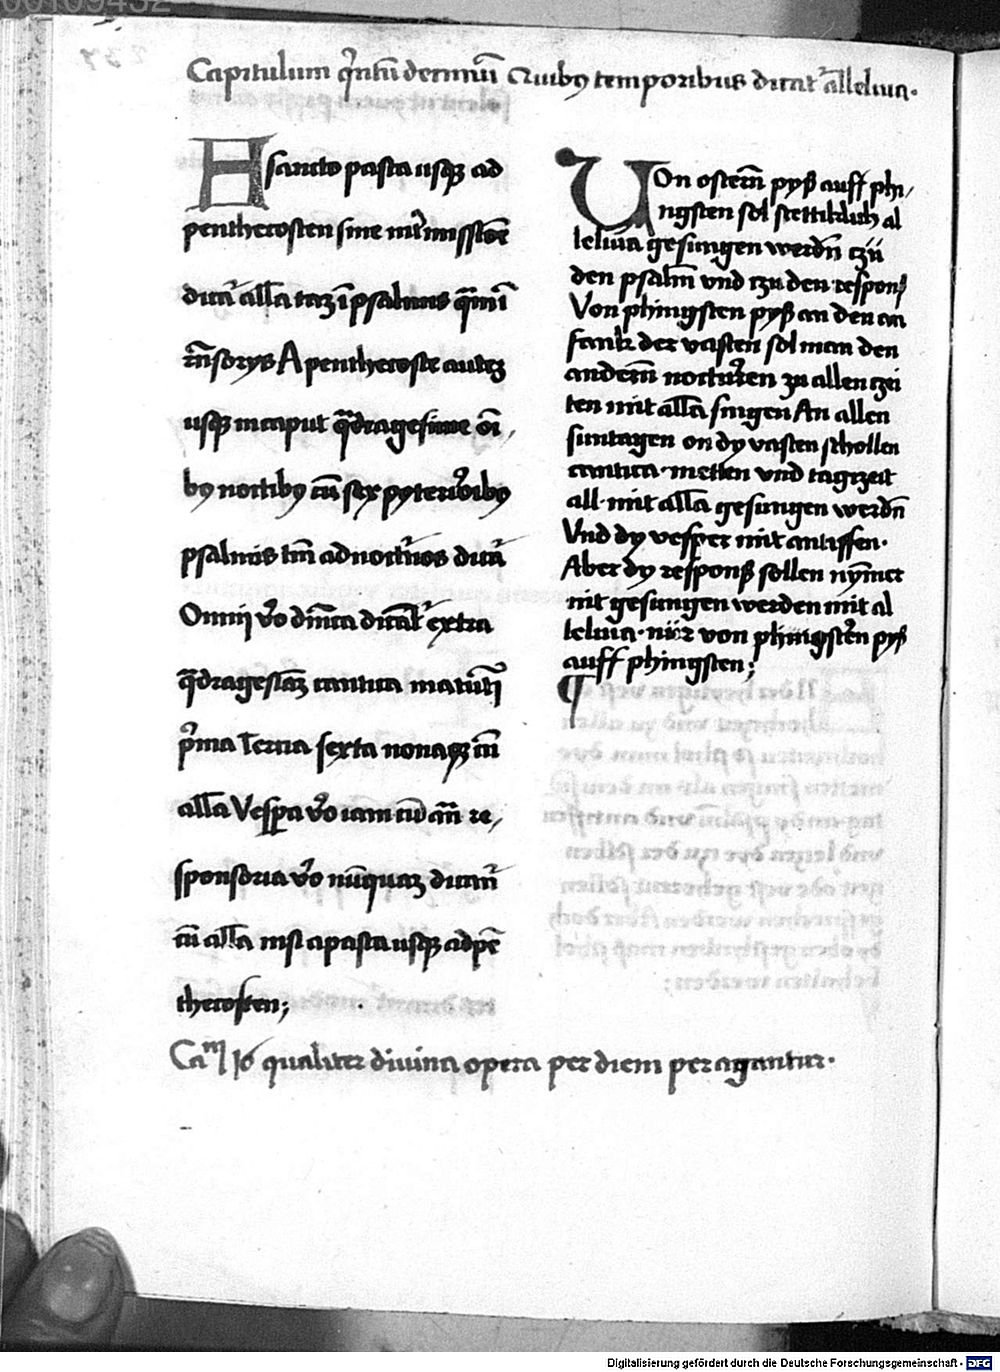 00109432
Capitulum q̄ntū decimū Quibꝫ temporibus dicat᷑ alleliua.
A sancto pasca usqꝫ ad
penthecosten sine int᷑missiōe
dicat᷑ all̄a taꝫ ī psalmis q̄m ī
rn̄sorys A penthecoste auteꝫ
usqꝫ in caput q̄dragesime oī,
bꝫ noctibꝫ cū sex pyteriōibꝫ
psalmis tm̄ ad noct᷑nos dicat᷑
Omni v̄o dn̄ica dicat᷑ extra
q̄dragesimaꝫ cantica matuti᷑
p᷑ma Tercia sexta nonaqꝫ cū
all̄a Vespꝑa v̄o iam cū an̄ re,
sponsoria v̄o nūquaꝫ dicant᷑
cū all̄a nisi a pasca usqꝫ ad pē
thecosten;
Von ostern̄ pyß auff phi,
ngsten sol stettiklich al
leluia gesungen werdn̄ czü
den psalm̄ vnd czu den respons
Von phingsten pyß an den an
fank der vasten sol man den
andern̄ nocturen zu allen czei
ten mit all̄a singen An allen
suntagen on dy vasten schollen
cantica · metten vnd tagczeit
all · mit all̄a gesungen werdn̄
Vnd dy vesper mit antiffen.
Aber dy respons sollen nym̄er
nit gesungen werden mit al
leluia · nür von phingsten pyß
auff phingsten;
¶
Cam̄ 16 qualiter divina opera per diem peragantur.
Digitalisierung gefördert durch die Deutsche Forschungsgemeinschaft - DFG